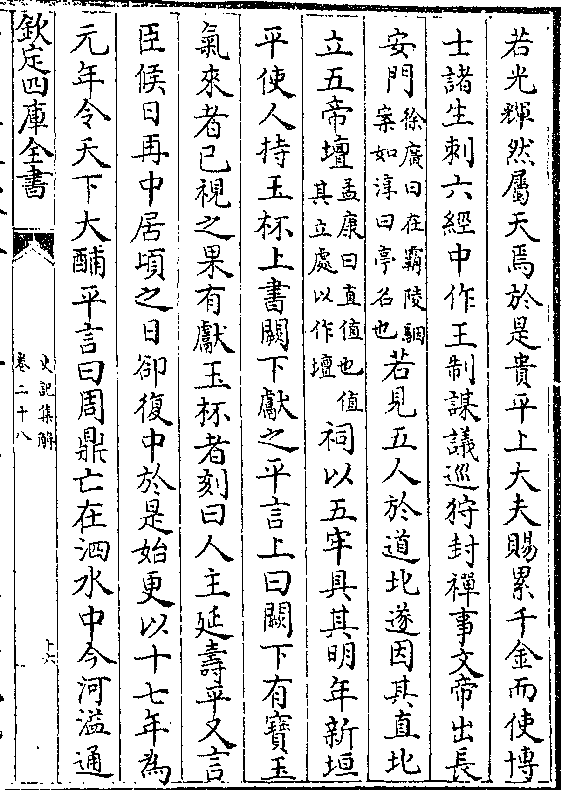 若光輝然屬天焉於是貴平上大夫賜累千金而使博
士諸生刺六經中作王制謀議巡狩封禪事文帝出長
安門徐廣曰在霸陵駰案如淳曰亭名也若見五人於道北遂因其直北
立五帝壇孟康曰直值也值其立處以作壇祠以五牢具其明年新垣
平使人持玉杯上書闕下獻之平言上曰闕下有寶玉
氣來者已視之果有獻玉杯者刻曰人主延壽平又言
臣候日再中居頃之日卻復中於是始更以十七年為
元年令天下大酺平言曰周鼎亡在泗水中今河溢通
欽定四庫全書
史記集解
卷二十八